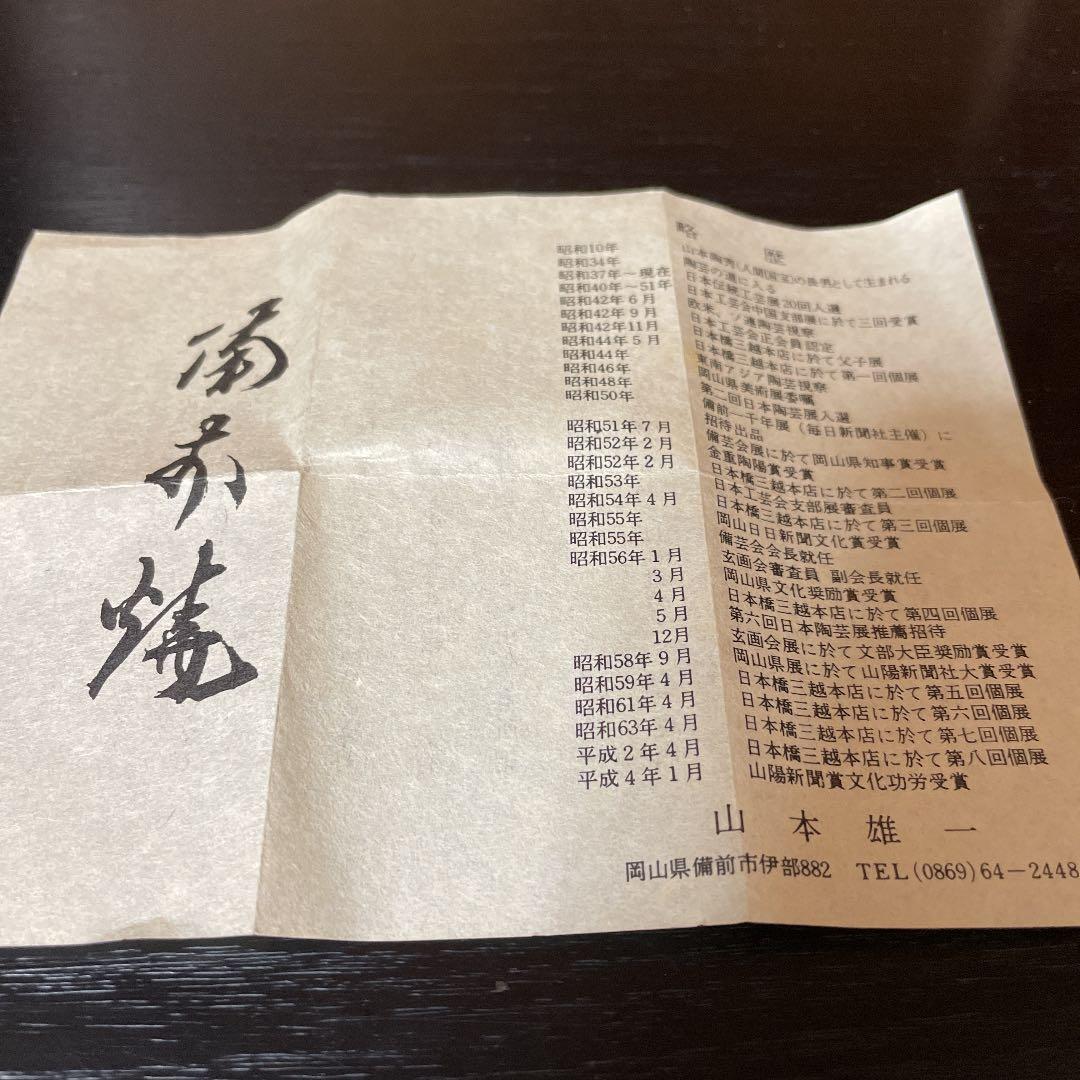 備前焼
略歴
昭和10年 山本陶秀(人間国宝)の長男として生まれる
昭和34年 陶芸の道に入る
昭和37年～現在 日本伝統工芸展20回入選
昭和40年～51年 日本工芸会中国支部展に於て三回受賞
昭和42年6月 欧米、ソ連陶芸視察
昭和42年9月 日本工芸会正会員認定
昭和42年11月 日本橋三越本店に於て父子展
昭和44年5月 日本橋三越本店に於て第一回個展
昭和44年 東南アジア陶芸視察
昭和46年 岡山県美術展委嘱
昭和48年 第二回日本陶芸展入選
昭和50年 備前一千年展(毎日新聞社主催)に
招待出品
昭和51年7月 備芸会展に於て岡山県知事賞受賞
昭和52年2月 金重陶陽賞受賞
昭和52年2月 日本橋三越本店に於て第二回個展
昭和53年 日本工芸会支部展審査員
昭和54年4月 日本橋三越本店に於て第三回個展
昭和55年 岡山日日新聞文化賞受賞
昭和55年 備芸会会長就任
昭和56年1月 玄画会審査員 副会長就任
3月 岡山県文化奨励賞受賞
4月 日本橋三越本店に於て第四回個展
5月 第六回日本陶芸展推薦招待
12月 玄画会展に於て文部大臣奨励賞受賞
昭和58年9月 岡山県展に於て山陽新聞社大賞受賞
昭和59年4月 日本橋三越本店に於て第五回個展
昭和61年4月 日本橋三越本店に於て第六回個展
昭和63年4月 日本橋三越本店に於て第七回個展
平成2年4月 日本橋三越本店に於て第八回個展
平成4年1月 山陽新聞賞文化功労受賞
山本雄一
岡山県備前市伊部882 TEL(0869)64－2448